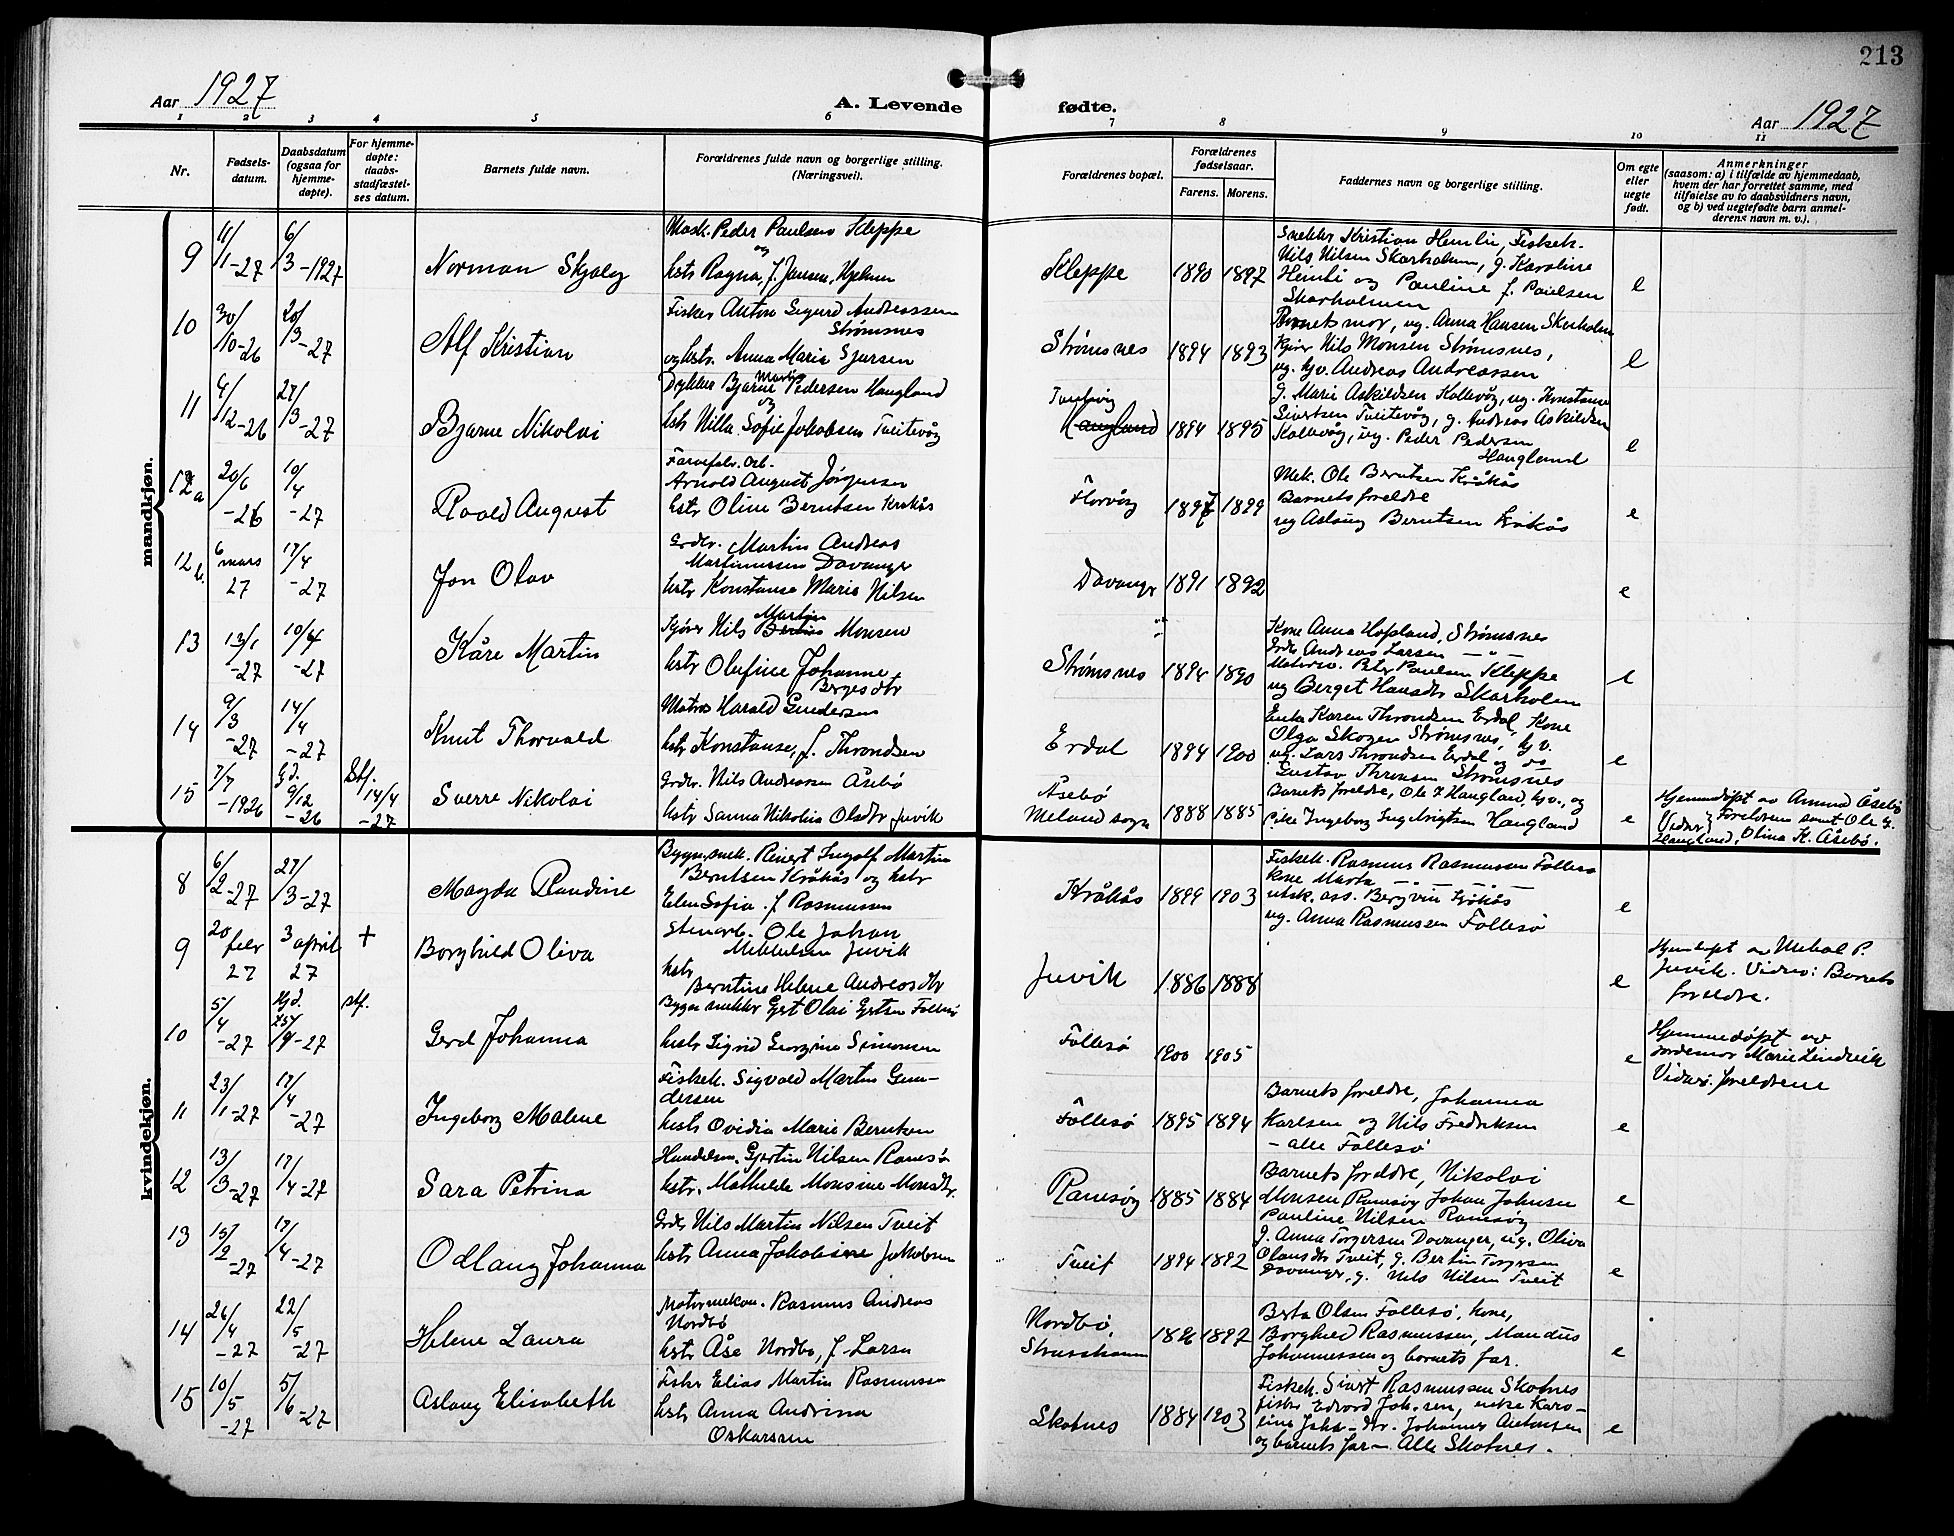 213
Aar 1927
A. Levende fødte.
Aar 1927
1 2 3 4 5 6 7 8 9 10 11
Nr.
Fødsels-
datum.
Daabsdatum
(ogsaa for
hjemme-
døpte).
For hjemme-
døpte:
daabs-
stadfæstel-
ses datum.
Barnets fulde navn.
Forældrenes fulde navn og borgerlige stilling.
(Næringsvei).
Forældrenes bopæl.
Forældrenes
fødselsaar.
Farens. Morens.
Faddernes navn og borgerlige stilling.
Om egte
eller
uegte
født.
Anmerkninger
(saasom: a) i tilfælde av hjemmedaab,
hvem der har forrettet samme, med
tilføielse av to daabsvidners navn,
og b) ved uegtefødte barn anmel-
derens navn m. v.).
mandkjøn.
9 11/1-27 6/3-1927 Norman Skjalg
Mask. Peder Paulsen Kleppe
og
hstr Ragna, f. Jansen, Hjelmen
Kleppe 1890 1897
Snekker Kristian Hemli, Fiskeh.
Nils Nilsen Skarholmen, g. Karoline
Hemli og Pauline f. Paulsen
Skarholmen
e
10 30/10-26 20/3-27 Alf Kristian
Fisker Anton Sigurd Andreassen
Strømsnes
og hstr. Anna Marie Sjursen
Strømsnes 1894 1893
Barnets mor, ug. Anna Hansen Skarholm
Skjøver Nils Monsen Strømsnes,
ug. hjv. Andreas Andreassen
e
11 4/12-26 27/3-27 Bjarne Nikolai
Dykker Bjarne Martin Pedersen Haugland
og
hstr Nilla Sofie Jakobsen Tveitevåg
Tveitevåg
Haugland 1894 1895
g. Marie Askildsen Kollevåg, ug. Konstanse
Sivertsen Tveitevåg, g. Andreas Askildsen
Kollevåg, ug. Peder Pedersen
Haugland
e
12a 20/6-26 10/4-27 Roald August
Farvefabr. arb.
Arnold August Jørgensen
hstr Oline Berntsen Kråkås
Florvåg 1897 1899
Mek. Ole Berntsen Kråkås
Barnets foreldre
ug Aslaug Berntsen Kråkås
e
12b. 6 mars 27 17/4-27 Jon Olav
Grdbr. Martin Andreas
Martinussen Davanger
hstr Konstanse Marie Nilsen
Davanger 1891 1892
e
13 13/1-27 10/4-27 Kåre Martin
Skjøver Nils Martin Monsen
hstr Olufine Johanne
Bergesdtr
Strømsnes 1894 1890
Kone Anna Hopland, Strømsnes
Grdbr. Andreas Larsen — " —
Motordrv. Peter Paulsen Kleppe
ug Berget Hansdtr Skarholm
e
14 9/3-27 14/4-27 Knut Thorvald
Matros Harald Gundersen
hstr Konstanse, f. Throndsen
Erdal 1894 1900
Enke Karen Throndsen Erdal, Kone
Olga Skogen Strømsnes, hjv.
ug. Lars Throndsen Erdal og do
Gustav Thronsen Strømsnes
e
15 7/7-1926 Hjd. 9/12-26 Stf. 14/4-27 Sverre Nikolai
Grdbr. Nils Andreassen Åsebø
hstr Sanna Nikolina Olsdtr Juvik
Åsebø
Meland sogn 1888 1885
Barnets foreldre, Ole J Haugland, hjv., og
pike Ingeborg Ingebrigtsen Haugland
e
Hjemmedøpt av Amund Åsebø
Vidner: Foreldrene samt Ole J.
Haugland, Olina K. Åsebø.
kvindekjøn.
8 6/2-27 27/3-27 Magda Randine
Bygn.snek. Reinert Ingolf Martin
Berntsen Kråkås og hstr
Elen Sofia f Rasmussen
Kråkås 1899 1903
Fiskeh. Rasmus Rasmussen Follesø
kone Marta — " — — " —
utsk. ass. Bergvin Kråkås
ug. Anna Rasmussen Follesø
e
9 20 febr 27 3 april 27 + Borghild Oliva
Stenarb. Ole Johan
Mikkelsen Juvik
hstr
Berntine Helene Andreasdtr
Juvik 1886 1888
e
Hjemdøpt av Mikal P.
Juvik. Vidner: Barnets
foreldre.
10 5/4-27 Hjd. stf. Gerd Johanna
Bygn snekker Gert Olai Gertsen Follesø
hstr Sigrid Georgina Simonsen
Follesø 1900 1905
e
Hjemmedøpt av
jordemor Marie Lindvik
Vidner: foreldrene
11 23/1-27 17/4-27 Ingeborg Malene
Fiskeh. Sigvald Martin Gun-
dersen
hstr Ovidia Marie Berntsen
Follesø 1895 1894
Barnets foreldre, Johanna
Karlsen og Nils Fredriksen
– alle Follesø
e
12 13/3-27 17/4-27 Sara Petrina
Handelsm. Gjertin Nilsen Ramsø
hstr. Mathilde Monsine Monsdtr.
Ramsøy 1885 1884
Barnets foreldre, Nikolai
Monsen Ramsøy Johan Johnsen
Pauline Nilsen Ramsøy
e
13 15/2-27 17/4-27 Odlaug Johanna
Grdbr Nils Martin Nilsen Tveit
hstr Anna Jakobine Jakobsen
Tveit 1894 1892
g. Anna Torgersen Davanger, ug. Oliva
Olausdtr Tveit, g. Bertin Torgersen
Davanger, g. Nils Nilsen Tveit
e
14 26/4-27 22/5-27 Helene Laura
Motormekan. Rasmus Andreas
Nordbø
hstr Åse Nordbø, f. Larsen
Nordbø,
Strusshamn 1896 1897
Berta Olsen Follesø, kone,
Borghild Rasmussen, Mandus
Johannessen og barnets far.
e
15 10/5-27 5/6-27 Aslaug Elisabeth
Fisker Elias Martin Rasmussen
hstr Anna Andrina
Oskarssen
Skotnes 1884 1903
Fiskeh. Sivert Rasmussen Skotnes
fisker Edvard Joh.sen, enke Karo-
line Joha–dtr. Johannes Antonsen
og barnets far – Alle Skotnes.
e